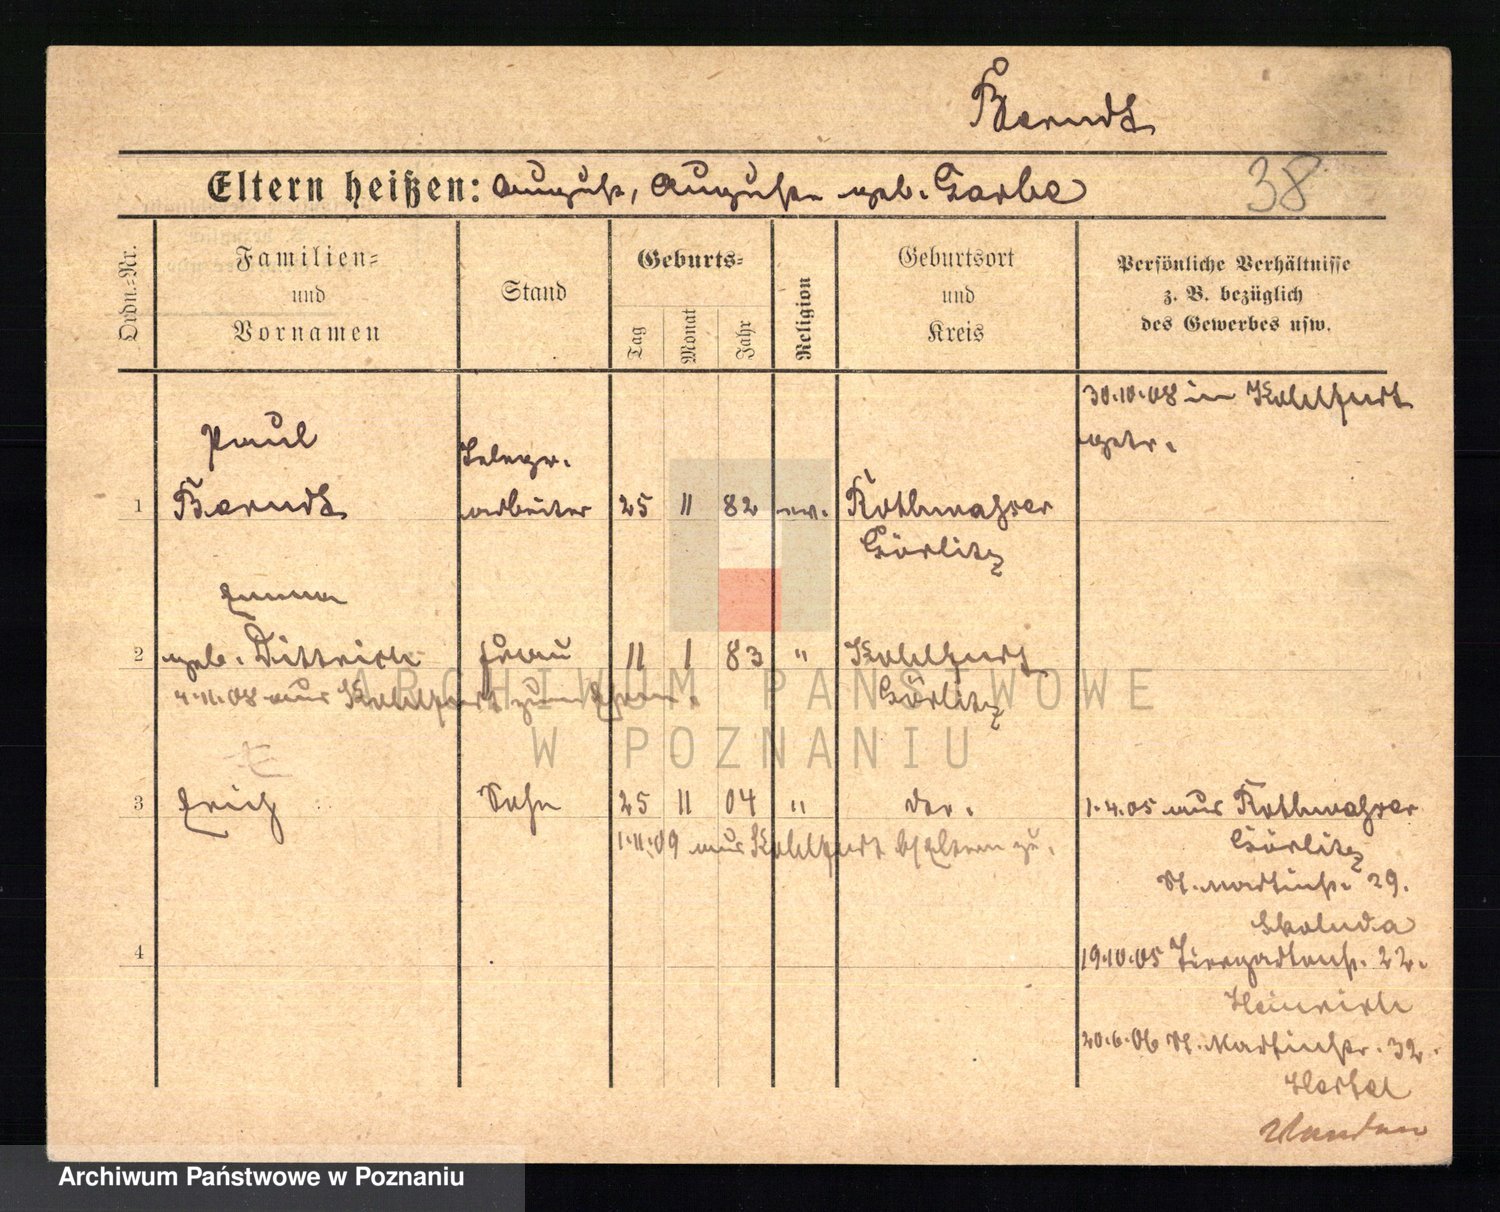 Berndt
Eltern heißen: August, Auguste geb. Garbe
38
Ordn.-Nr.
Familien- und Vornamen
Stand
Geburts-
Tag
Monat
Jahr
Religion
Geburtsort und Kreis
Persönliche Verhältnisse z. B. bezüglich des Gewerbes usw.
30.10.08 in Kohlfurt
getr.
Paul
Telegr.
1 Berndt arbeiter 25 11 82 ev. Rothwasser
Görlitz
Emma
2 geb. Dittrich Frau 11 1 83 " Kohlfurt
4.11.08 aus Kohlfurt zum Ehem. Görlitz
3 Erich Sohn 25 11 04 " do. 1.4.05 aus Rothwasser
1.11.09 aus Kohlfurt Eltern zu. Görlitz
St. Martinstr. 29.
Skoluda
4
19.10.05 Tiergartenstr. 22.
Heinrich
20.6.06 St. Martinstr. 32
ARCHIWUM PAŃSTWOWE
W POZNANIU
Archiwum Państwowe w Poznaniu